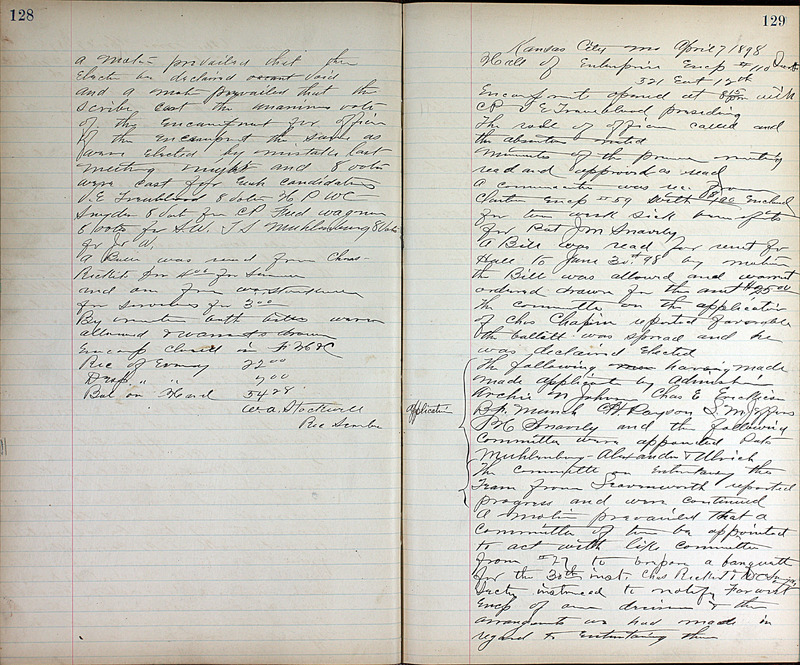 128
a motion prevailed that the
Election be declared void
and a motion prevailed that the
Scribe cast the unanimous vote
of the Encampment for officers
of the Encampment the same as
were Elected by mistake last
meeting night and 8 votes
were cast for Each candidate
J.E. Trueblood 8 votes H P WC
Snyder 8 Vot for CP Fred Wagner
8 votes for S.W. T S Muhlenburg 8 Votes
for J W.
A Bill was read from Chas
Rickert for 4 00 for
and one from
for services for 3 00
By motion both bills were
allowed & warrants drawn
Encamp closed in F H & C
Rec of Evening 22 00
" " 7 00
Bal on Hand 54 28
W A Stockwell
Rec Scribe
129
Kansas City Mo April 7 1898
Hall of Enterprise Encp # 110
321 East 12th
Encampment opened at 8 15 pm with
CP J E Trueblood presiding
The role of officers called and
the absentees noted
Minutes of the previous meeting
read and approved as read
A communication was rec from
Encp # 59 with enclosed
for two week sick benefits
for Pat J M Snavely
A Bill was read for rent for
Hall to June 30th 98 by motion
the Bill was allowed and warrant
ordered drawn for the amt $ 25 00
The committee on the application
of Chas Chapin reported favorable
the ballott was spread and he
was declaired Elected
Application
The following having made
made applicati by
Archie M John Chas E
B.F. C H Payson S. M
P H Snavely and the following
Committee were appointed Pats
Muhlenburg - Alexander & Ulrich
The committe on Entertaing the
Team from Leavenworth reported
progress and were continued
A motion prevailed that a
Committee of two be appointed
to act with like committee
from # 27 to prepare a banquett
for the 30th inst. Chas Rickert &
Secty instruced to notify
Encp of our decision & the
arrangements we had made in
regard to Entertaining them